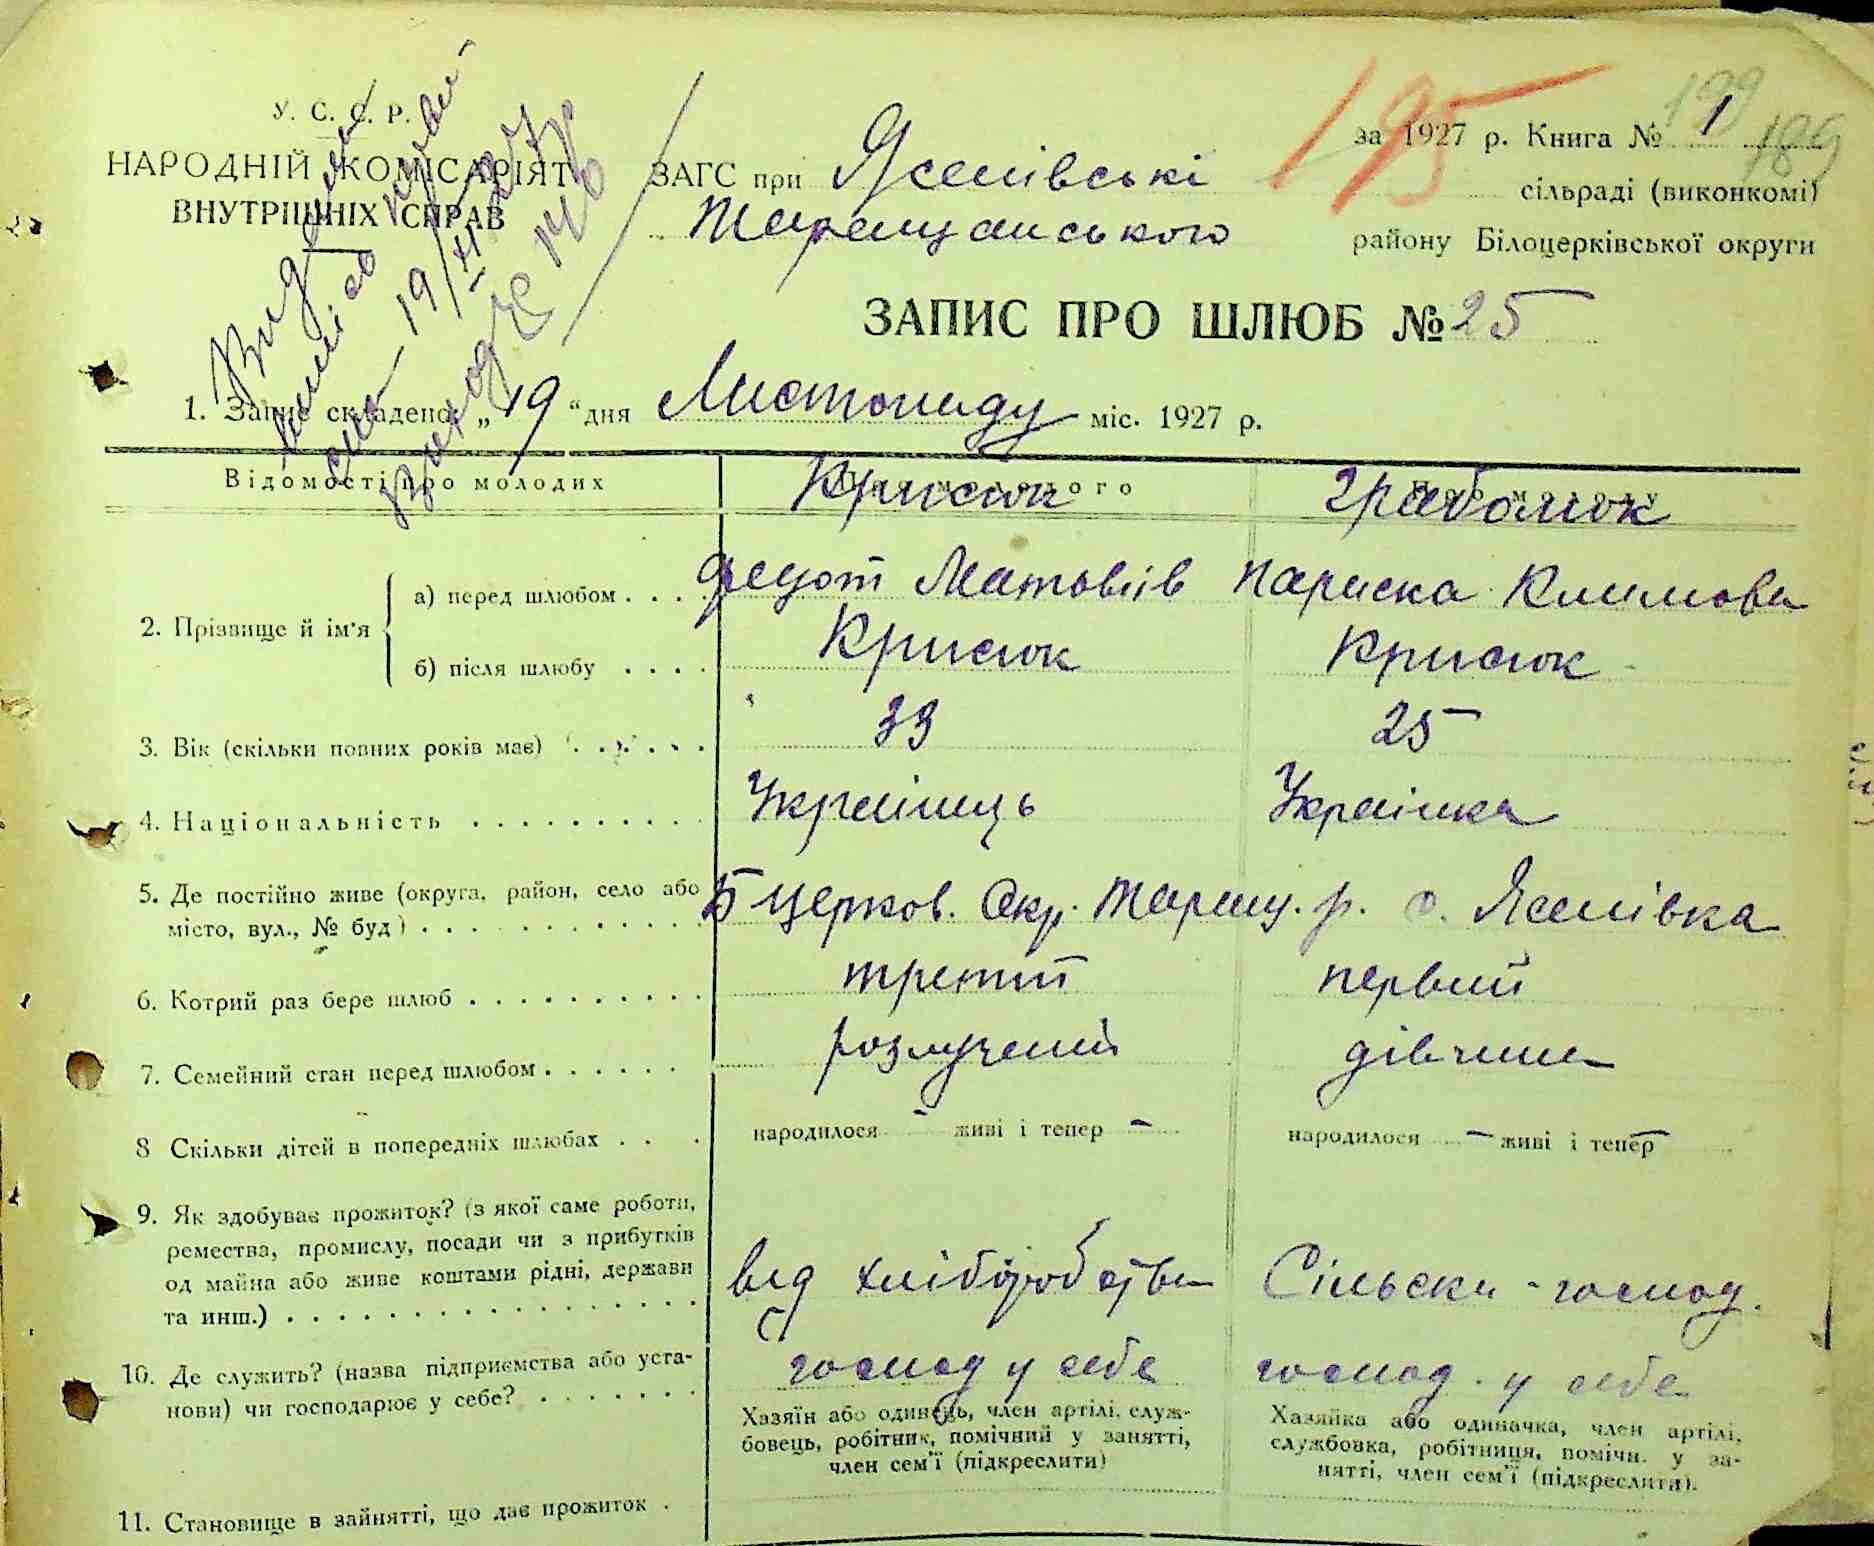 У. С. С. Р.
НАРОДНІЙ КОМІСАРІЯТ
ВНУТРІШНІХ СПРАВ
195
199
189
за 1927 р. Книга № 1
ЗАГС при Ясенівські сільраді (виконкомі)
Таращанського району Білоцерківської округи
ЗАПИС ПРО ШЛЮБ № 25
1. Запис складено: „19“ дня Листопаду міс. 1927 р.
Відомості про молодих
Про молодого Про молоду
Крисюк Граболюк
2. Прізвище й ім'я
а) перед шлюбом . . . . Федот Матовіїв Параска Климова
б) після шлюбу . . . . Крисюк Крисюк
3. Вік (скільки повних років має) . . . . . . 33 25
4. Національність . . . . . . . . . . Українець Українка
5. Де постійно живе (округа, район, село або
місто, вул., № буд) . . . . . . . . . . . . Б Церков. Окр. Таращ. р. с. Ясенівка
6. Котрий раз бере шлюб . . . . . . . . . . третій первий
7. Семейний стан перед шлюбом . . . . . . розлучений дівчина
8 Скільки дітей в попередніх шлюбах . . . народилося – живі і тепер – народилося – живі і тепер –
9. Як здобуває прожиток? (з якої саме роботи,
ремества, промислу, посади чи з прибутків
од майна або живе коштами рідні, держави
та инш.) . . . . . . . . . . . . . . . . від хліборобства Сільска-господ.
10. Де служить? (назва підприємства або уста-
нови) чи господарює у себе? . . . . . . . господ у себе господ. у себе
Хазяїн або одинець, член артілі, служ-
бовець, робітник, помічний у занятті,
член сем'ї (підкреслити)
Хазяйка або одиначка, член артілі,
службовка, робітниця, помічн. у за-
нятті, член сем'ї (підкреслити).
11. Становище в зайнятті, що дає прожиток .